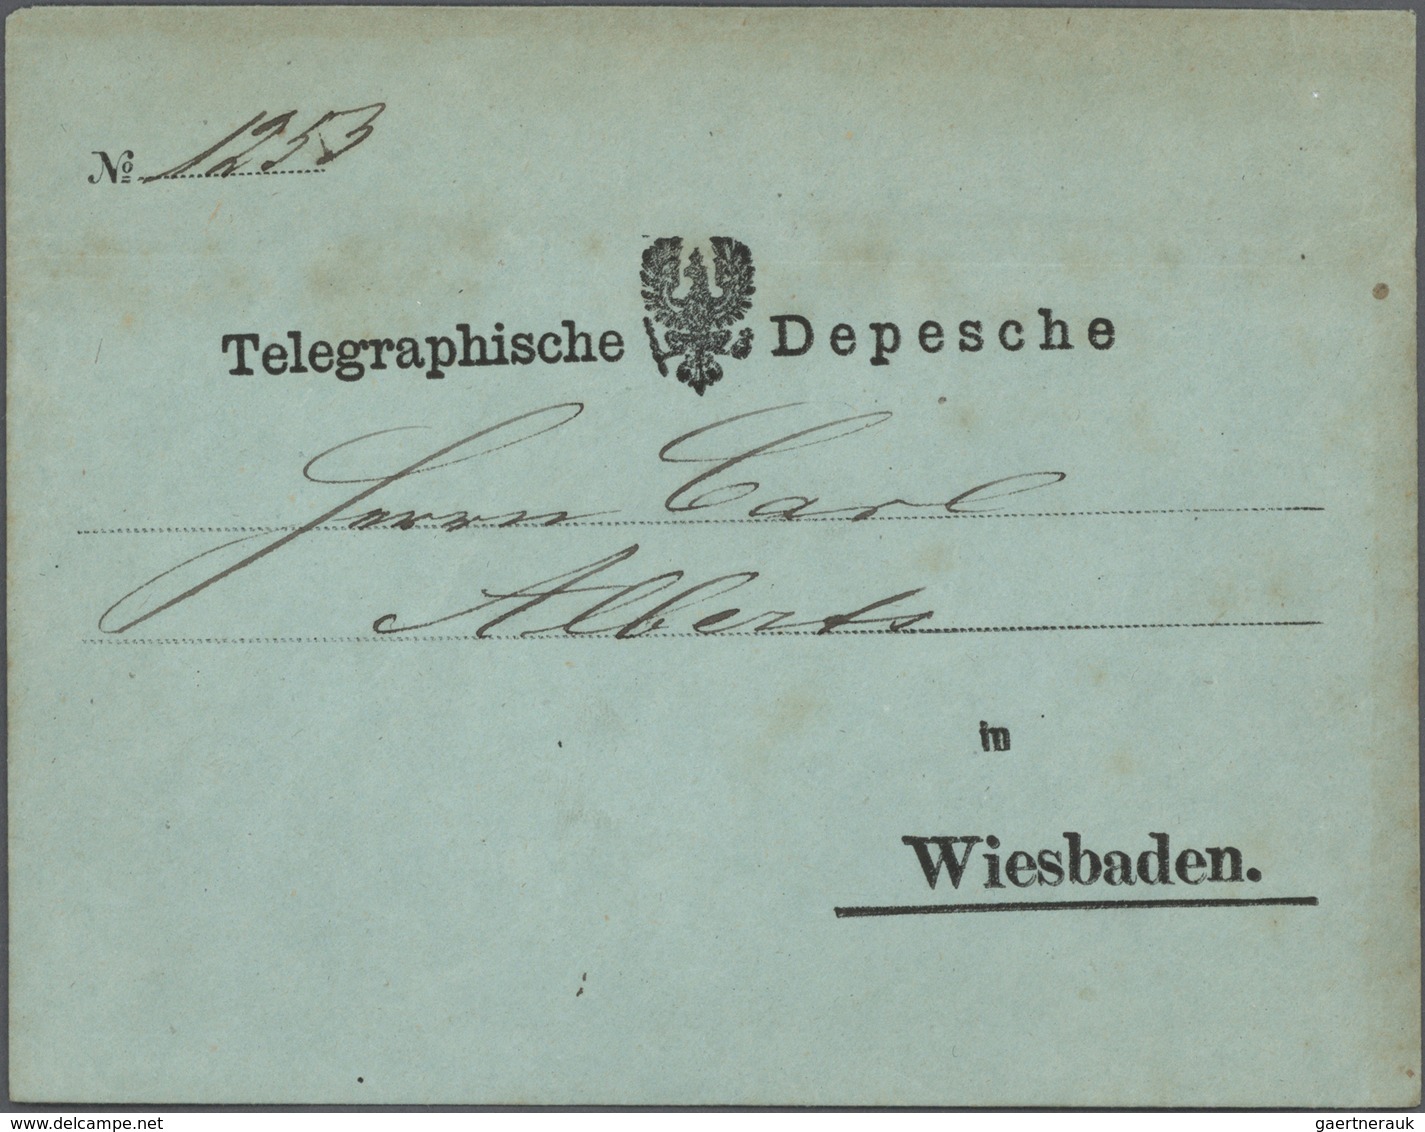 № 1253
Telegraphische Depesche
Herrn Carl
Alberts
in
Wiesbaden.
delcampe.net
gaertnerauk